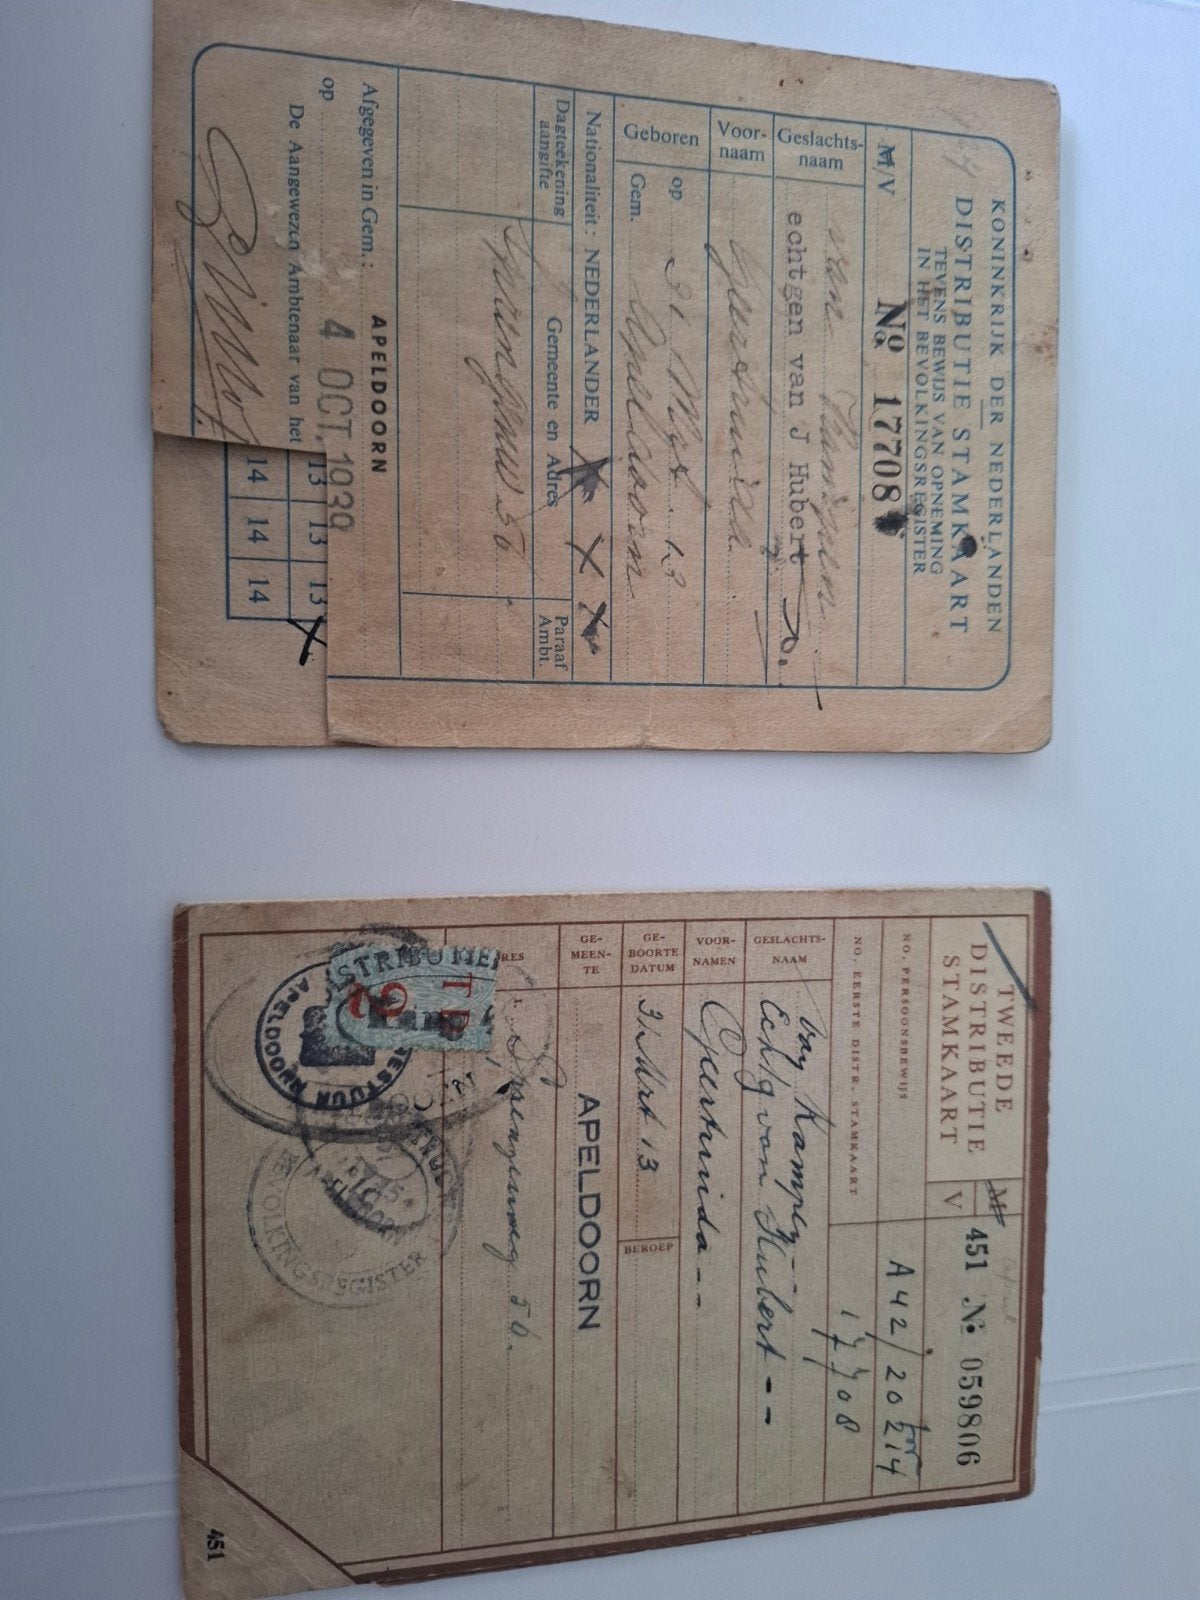 KONINKRIJK DER NEDERLANDEN
DISTRIBUTIE STAMKAART
TEVENS BEWIJS VAN OPNEMING
IN HET BEVOLKINGSREGISTER
M/V No 17708
Geslachts-
naam van Kampen
echtgen van J Hubert
Voor-
naam Geertruida
Geboren op 31 Mrt. 13
Gem. Apeldoorn
Nationaliteit: NEDERLANDER
Dagteekening
aangifte
Gemeente en Adres
Paraaf
Ambt.
56
Afgegeven in Gem.: APELDOORN
op 4 OCT. 1939
De Aangewezen Ambtenaar van het
13 13 13
14 14 14
TWEEDE
DISTRIBUTIE
STAMKAART
M
V
451 No 059806
NO. PERSOONSBEWIJS A42/202144
NO. EERSTE DISTR. STAMKAART 17708
GESLACHTS-
NAAM
van Kampen - -
Echtg van Hubert - -
VOOR-
NAMEN
Geertruida - -
GE-
BOORTE
DATUM
31 Mrt 13
BEROEP
GE-
MEEN-
TE
APELDOORN
RES
1. 56.
TD
APELDOORN
BEVOLKINGSREGISTER
451